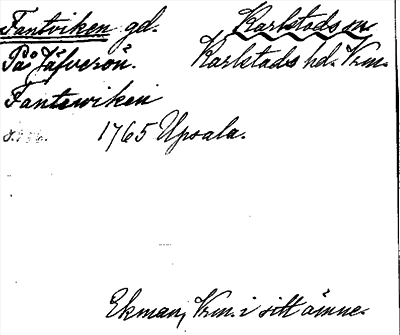 Fantviken gd. Karlstads sn.
På Jäfverön. Karlstads hd. Vrm.
Fantewiken
1765 Upsala.
Ekman, Vrm. i sitt ämne.